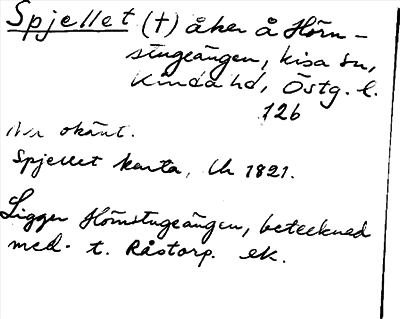 Spjellet (†) åker å Hörn-
stugeängen, Kisa sn,
Kinda hd, Östg. l.
126
Nr okänt.
Spjellet karta, Lh 1821.
Ligger Hörnstugeängen, betecknad
med t. Råstorp. ek.